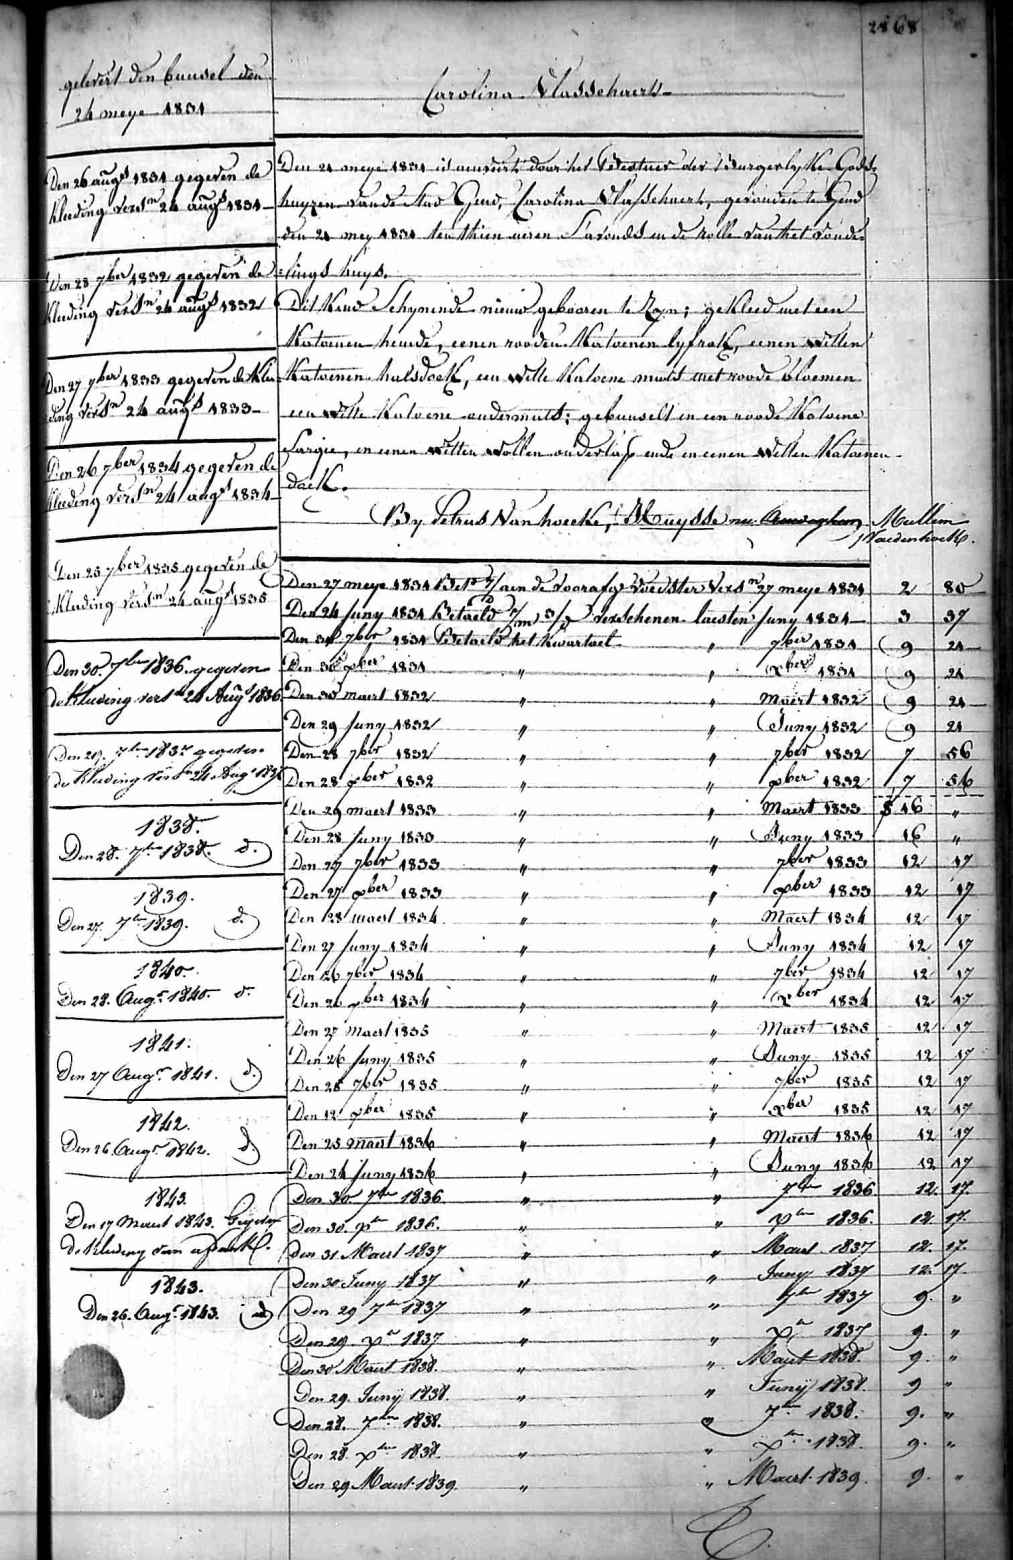 2868
gelevert den bunsel den
24 meye 1831
Carolina Vlasschaert
Den 26 augs 1831 gegeven de
kleeding versn 24 augs 1831
Den 28 7ber 1832 gegeven de
kleeding versn 24 augs 1832
Den 27 7ber 1833 gegeven de klee
ding versn 24 augs 1833
Den 26 7ber 1834 gegeven de
kleeding versn 24 augs 1834
Den 25 7ber 1835 gegeven de
kleeding versn 24 augs 1835
Den 30. 7ber 1836. gegeven
de kleeding versn 24 Aug 1836
Den 29. 7ber 1837 gegeven
de kleeding versn 24 Augs 1837
1838.
Den 28. 7ber 1838. d.
1839.
Den 27. 7ber 1839. d.
1840.
Den 28. Augs 1840. d.
1841.
Den 27 Augs 1841. d.
1842.
Den 26. Augs 1842. d.
1843.
Den 17 Maert 1843. Gegeven
de kleeding van
1843.
Den 26. Augs 1843. id
Den 24 meye 1831 is aenveirt door het Bestuer der Burgerlyke Gods
huyzen van de Stad Gend, Carolina Vlasschaert, gevonden te Gend
den 24 mey 1831 ten thien uren S'avonds in de rolle van het vonde
lings huys.
Dit Kind Schynende nieuw gebooren te Zyn; gekleed met een
Katoenen hemde, eenen rooden Katoenen lyfrok, eenen Witten
Katoenen halsdoek, een Witte Katoene muts met roode bloemen
een Witte Katoene ondermuts; gebunselt in een roode Katoene
Sargie, en eenen Witten Wollen onderlap ende en eenen Witten Katoenen
doek.
By Petrus Vanhoecke, Huysse nu Mullem
Den 27 meye 1831 Bet aen de voorafge voedster versn 27 meye 1831 2 80
Den 24 Juny 1831 Betaeld verschenen laesten Juny 1831 3 37
Den 30 7ber 1831 Betaeld het kwartael " 7ber 1831 9 24
Den 30 xber 1831 " " xber 1831 9 24
Den 30 maert 1832 " " Maert 1832 9 24
Den 29 Juny 1832 " " Juny 1832 9 24
Den 28 7ber 1832 " " 7ber 1832 7 56
Den 28 xber 1832 " " xber 1832 7 56
Den 29 maert 1833 " " Maert 1833 $ 16 "
Den 28 Juny 1833 " " Juny 1833 16 "
Den 27 7ber 1833 " " 7ber 1833 12 17
Den 27 xber 1833 " " xber 1833 12 17
Den 28 maert 1834 " " Maert 1834 12 17
Den 27 Juny 1834 " " Juny 1834 12 17
Den 26 7ber 1834 " " 7ber 1834 12 17
Den 26 xber 1834 " " xber 1834 12 17
Den 27 Maert 1835 " " Maert 1835 12 17
Den 26 Juny 1835 " " Juny 1835 12 17
Den 25 7ber 1835 " " 7ber 1835 12 17
Den 12 xber 1835 " " xber 1835 12 17
Den 25 maart 1836 " " Maert 1836 12 17
Den 24 Juny 1836 " " Juny 1836 12 17
Den 30 7ber 1836 " " 7ber 1836 12. 17.
Den 30. xber 1836. " " xber 1836. 12. 17.
Den 31 Maert 1837 " " Maert 1837 12. 17.
Den 30 Juny 1837 " " Juny 1837 12. 17
Den 29 7ber 1837 " " 7ber 1837 9. "
Den 29. xber 1837 " " xber 1837 9. "
Den 30 Maert 1838. " " Maert 1838. 9. "
Den 29. Junij 1838. " " Junij 1838. 9 "
Den 28. 7ber 1838. " " 7ber 1838. 9. "
Den 28 xber 1838. " " xber 1838 9. "
Den 29 Maert 1839. " " Maert 1839. 9. "